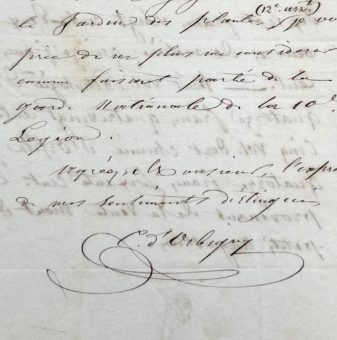 (12e arrt)
le Jardin des plantes, je vous
prie de ne plus me considérer
comme faisant partie de la
garde Nationale de la 10e
Légion.
Agréez, Monsieur, l'expre
de mes sentiments distingués
C. d'Orbigny